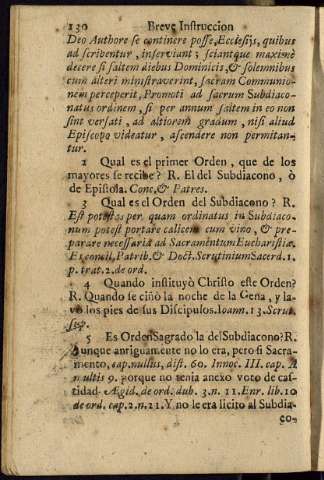 130 Breve Instruccion
Deo Authore se continere posse, Ecclesijs, quibus
ad scribentur, inserviant; sciantque maximè
decere si saltem diebus Dominicis, & solemnibus
cum alteri ministraverint, sacram Communio-
nem perceperit, Promoti ad sacrum Subdiaco-
natus ordinem, si per annum saltem in eo non
sint versati, ad altiorem gradum, nisi aliud
Episcopo videatur, ascendere non permitan-
tur.
2 Qual es el primer Orden, que de los
mayores se recibe? R. El del Subdiacono, ò
de Epistola. Conc. & Patres.
3 Qual es el Orden del Subdiacono? R.
Est potestas per quam ordinatus in Subdiaco-
num potest portare calicem cum vino, & pre-
parare necessaria ad Sacramentum Eucharistiæ.
Ex concil. Patrib. & Doct. Scrutinium Sacerd. 1.
p. trat. 2. de ord.
4 Quando instituyò Christo este Orden?
R. Quando se ciñò la noche de la Cena, y la-
vò los pies de sus Discipulos. Ioann. 13. Scrut.
sup.
5 Es Orden Sagrado la del Subdiacono? R.
Aunque antiguamente no lo era, pero si Sacra-
mento, cap. nullus, dist. 60. Innoc. III. cap. A
multis 9. porque no tenia anexo voto de cas-
tidad. Ægid. de ord. dub. 3. n. 11. Enr. lib. 10
de ord. cap. 2. n. 11. Y no le era licito al Subdia-
co-